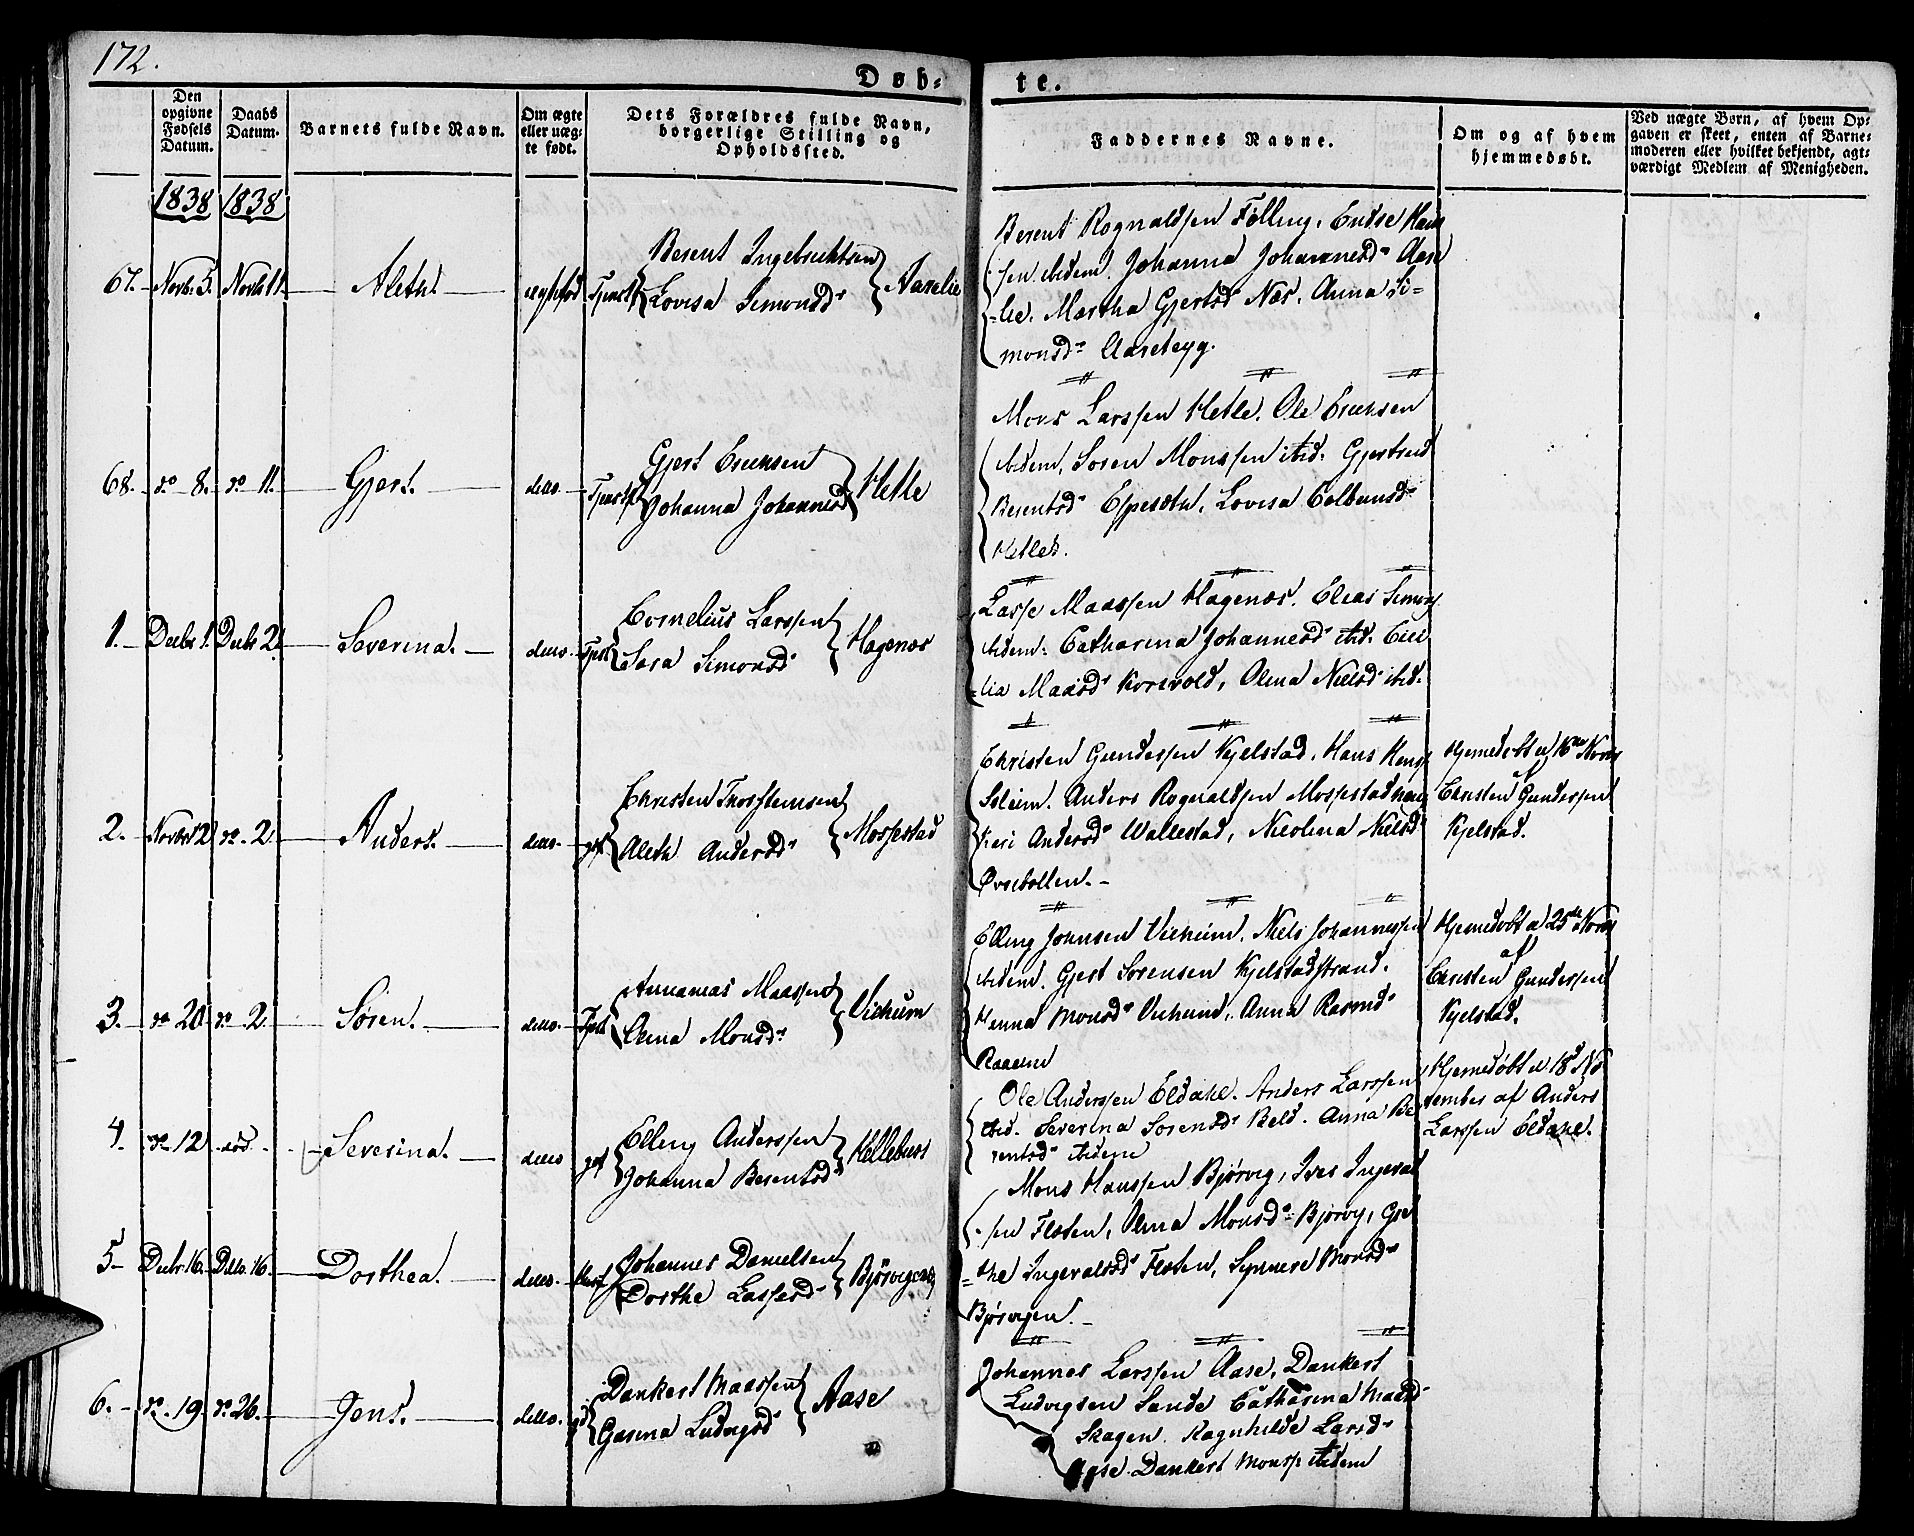 172.
Døb- te.
Den opgivne Fødsels Datum.
Daabs Datum.
Barnets fulde Navn.
Om ægte eller uæg- te født.
Dets Forældres fulde Navn, borgerlige Stilling og Opholdssted.
Faddernes Navne.
Om og af hvem hjemmedøbt.
Ved uægte Børn, af hvem Op- gaven er skeet, enten af Barne- moderen eller hvilket bekjendt, agt- værdigt Medlem af Menigheden.
1838 1838
67. Novb. 5. Novb. 11. Aleth.
Berent Ingebrichtsen
Lovisa Simonsd.
Berent Rognaldsen Følling, Endre Han
sen ibidem. Johanna Johannesd. Aase
lie. Martha Gjertsd. Næs. Anna Si-
monsd. Aarebeyg.
68. do 8. do 11. Gjert. detto.
Gjert Ericksen
Johanna Johannesd. Hetle
Mons Larssen Hetle. Ole Ericksen
ibidem, Soren Monssen ibid. Gjertrud
Berentsd. Espesæth, Lovisa Colbensd.
Hetle.
1. Decbr 1. Decbr 2. Severina. detto.
Cornelius Larssen
Sara Simonsd. Hagenæs
Lasse Maassen Hagenæs. Elias Simons.
ibidem. Catharina Johannesd. ibid. Ceci
lia Maasd. Korsvold, Olina Nielsd. ibid.
2. Novbr 12 do. 2. Anders. detto. gf
Christen Thorsteinsen
Aleth Andersd. Mossestad
Christen Gundersen Kjelstad, Hans Hans
Soleim. Anders Rognaldsen Mossestad
Kari Andersd. Wallestad, Nicolina Nielsd.
Øvrebotten.
Hjemedøbt d 16de Novbr
af
Christen Gundersen
Kjelstad.
3. do 20. do 2. Søren. detto.
Annanias Maassen
Olina Monsd. Vieheim
Elling Johnsen Vieheim. Niels Johannessen
ibidem. Gjert Sorensen Kjelstadstrand.
Henna Monsd. Vieheim. Anna Rasmd.
Raaeim
Hjemedøbt d 25de Novbr
af
Christen Gundersen
Kjelstad.
4. do 12 Severina. detto gf
Elling Anderssen
Johanna Berentsd. Hellebust
Ole Anderssen Eldahl. Anders Larssen
ibid. Severina Sorensd. Beld. Anna Be
rentsd. ibidem
Hjemedøbt d 18d No
vember af Anders
Larssen Eldahl.
5. Decbr 16. Detto. 16. Dorthea. detto.
Johannes Danielsen
Dorthe Lassesd. Bjørvigen
Mons Hanssen Bjørvig, Iver Ingevald
sen Floten, Olina Monsd. Bjørvig, Gre
the Ingevaldsd. Floten, Synneve Monsd.
Bjørvigen.
6. do. 19. do. 26. Jens. detto.
Dankert Maassen
Gasina Ludvigsd. Aase
Johannes Larssen Aase, Dankert
Ludvigsen Sande Catharina Maasd.
Skagen. Ragnhilde Larsd.
Aase Dankert Monss. ibidem